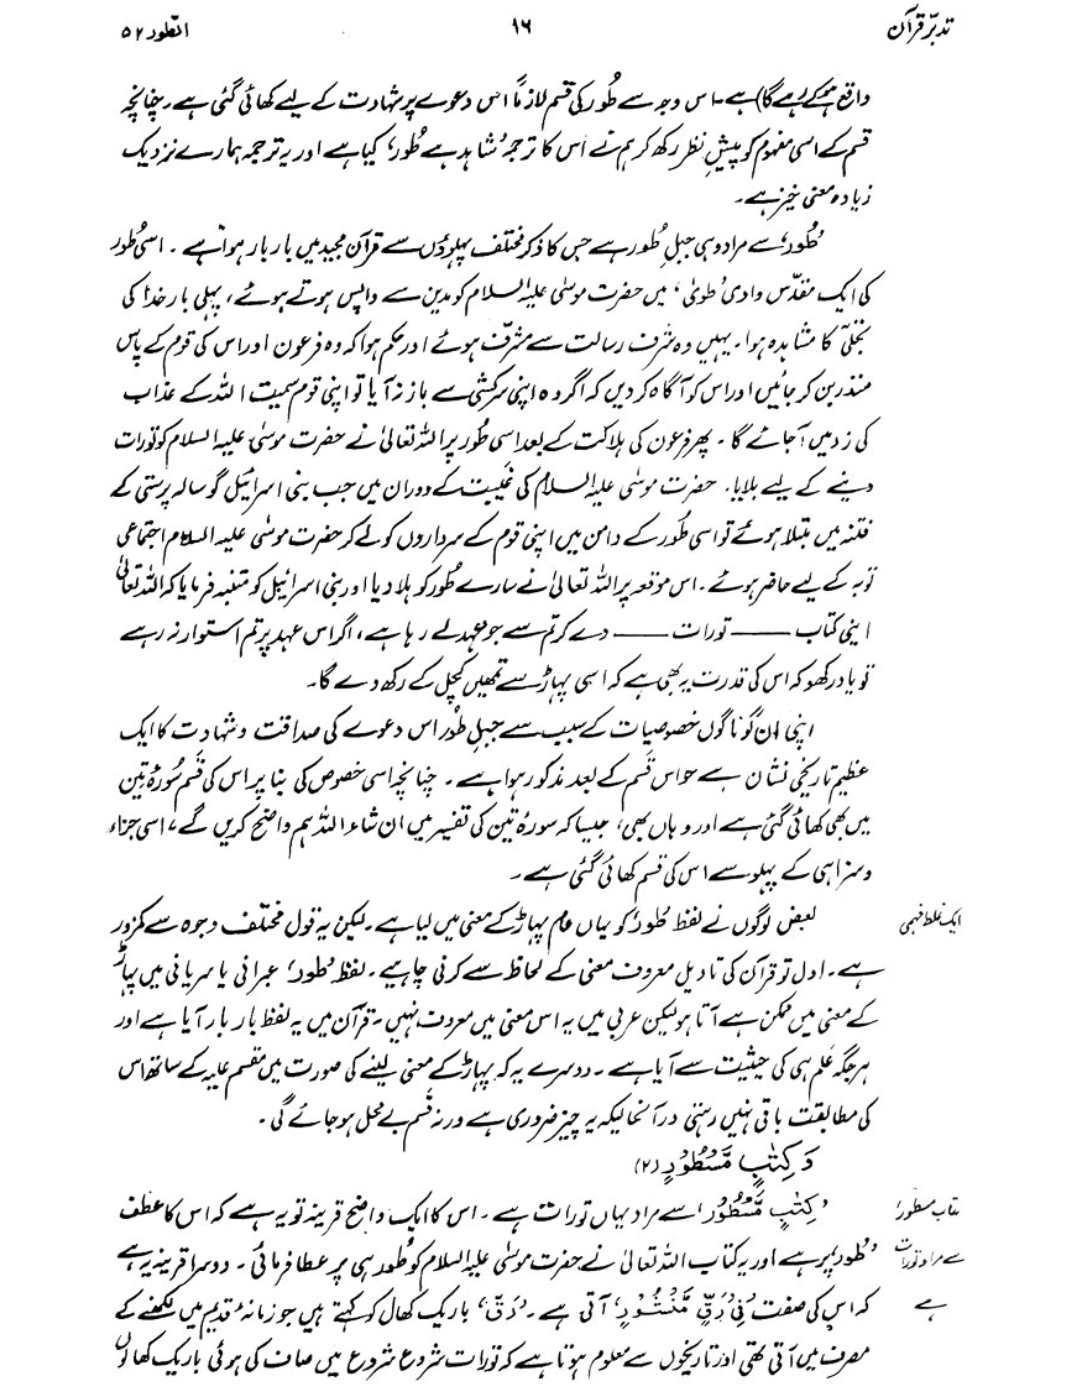 تدبّرِ قرآن ۱۶ الطّور ۵۲
واقع ہو کے رہے گا) ہے۔ اس وجہ سے طُور کی قسم لازماً اس دعوے پر شہادت کے لیے کھائی گئی ہے۔ چنانچہ
قسم کے اسی مفہوم کو پیشِ نظر رکھ کر ہم نے اس کا ترجمہ ’شاہد ہے طُور‘ کیا ہے اور یہ ترجمہ ہمارے نزدیک
زیادہ معنی خیز ہے۔
’طُور‘ سے مراد وہی جبلِ طُور ہے جس کا ذکر مختلف پہلوؤں سے قرآن مجید میں بار بار ہوا ہے۔ اسی طُور
کی ایک مقدّس وادی ’طویٰ‘ میں حضرت موسیٰ علیہ السلام کو مدین سے واپس ہوتے ہوئے، پہلی بار خدا کی
تجلّی کا مشاہدہ ہوا۔ یہیں وہ شرف رسالت سے مشرّف ہوئے اور حکم ہوا کہ وہ فرعون اور اس کی قوم کے پاس
منذر بن کر جائیں اور اس کو آگاہ کر دیں کہ اگر وہ اپنی سرکشی سے باز نہ آیا تو اپنی قوم سمیت اللہ کے عذاب
کی زد میں آجائے گا۔ پھر فرعون کی ہلاکت کے بعد اسی طُور پر اللہ تعالیٰ نے حضرت موسیٰ علیہ السلام کو تورات
دینے کے لیے بلایا۔ حضرت موسٰی علیہ السلام کی غَیبت کے دوران میں جب بنی اسرائیل گوسالہ پرستی کے
فتنہ میں مبتلا ہوئے تو اسی طُور کے دامن میں اپنی قوم کے سرداروں کو لے کر حضرت موسٰی علیہ السلام اجتماعی
توبہ کے لیے حاضر ہوئے۔ اس موقعہ پر اللہ تعالیٰ نے سارے طُور کو ہلا دیا اور بنی اسرائیل کو متنبہ فرمایا کہ اللہ تعالیٰ
اپنی کتاب —— تورات —— دے کر تم سے جو عہد لے رہا ہے، اگر اس عہد پر تم استوار نہ رہے
تو یاد رکھو کہ اس کی قدرت یہ بھی ہے کہ اسی پہاڑ سے تمھیں کچل کے رکھ دے گا۔
اپنی ان گوناگوں خصوصیات کے سبب سے جبلِ طُور اس دعوے کی صداقت و شہادت کا ایک
عظیم تاریخی نشان ہے جو اس قَسم کے بعد مذکور ہوا ہے۔ چنانچہ اسی خصوص کی بنا پر اس کی قَسم سُورۂ تین
میں بھی کھائی گئی ہے اور وہاں بھی، جیسا کہ سورۂ تین کی تفسیر میں ان شاء اللہ ہم واضح کریں گے، اسی جزاء
و سزا ہی کے پہلو سے اس کی قسم کھائی گئی ہے۔
ایک غلط فہمی
بعض لوگوں نے لفظ ’طُور‘ کو یہاں عام پہاڑ کے معنی میں لیا ہے۔ لیکن یہ قول مختلف وجوہ سے کمزور
ہے۔ اول تو قرآن کی تاویل معروف معنی کے لحاظ سے کرنی چاہیے۔ لفظ ’طور‘ عبرانی یا سریانی میں پہاڑ
کے معنی میں ممکن ہے آتا ہو لیکن عربی میں یہ اس معنی میں معروف نہیں۔ قرآن میں یہ لفظ بار بار آیا ہے اور
ہر جگہ عَلم ہی کی حیثیت سے آیا ہے۔ دوسرے یہ کہ پہاڑ کے معنی لینے کی صورت میں مقسم علیہ کے ساتھ اس
کی مطابقت باقی نہیں رہتی درآنحالیکہ یہ چیز ضروری ہے ورنہ قَسم بے محل ہو جائے گی۔
وَكِتٰبٍ مَّسْطُوْرٍ (۲)
’کتاب مسطور‘
سے مراد تورات
ہے
’كِتٰبٍ مَّسْطُوْرٍ‘ سے مراد یہاں تورات ہے۔ اس کا ایک واضح قرینہ تو یہ ہے کہ اس کا عطف
’طُور‘ پر ہے اور یہ کتاب اللہ تعالیٰ نے حضرت موسیٰ علیہ السلام کو طُور ہی پر عطا فرمائی۔ دوسرا قرینہ یہ ہے
کہ اس کی صفت ’فِيْ رَقٍّ مَّنْشُوْرٍ‘ آتی ہے۔ ’رَقّ‘ باریک کھال کو کہتے ہیں جو زمانۂ قدیم میں لکھنے کے
مصرف میں آتی تھی اور تاریخوں سے معلوم ہوتا ہے کہ تورات شروع شروع میں صاف کی ہوئی باریک کھالوں